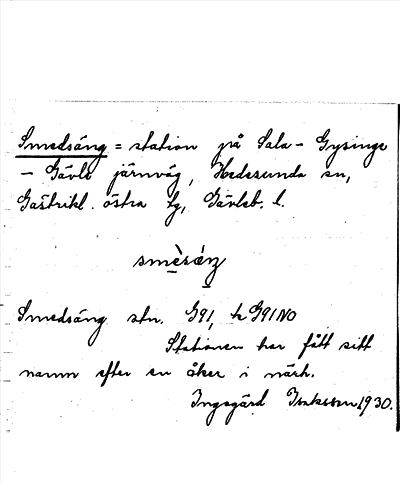 Smedsäng = station på Sala - Gysinge
- Gävle järnväg, Hedesunda sn,
Gästrikl. östra tg, Gävleb. l.
smèsǽŋ
Smedsäng stn. G91, k G91NO
Stationen har fått sitt
namn efter en åker i närh.
Ingegärd Isaksson, 1930.